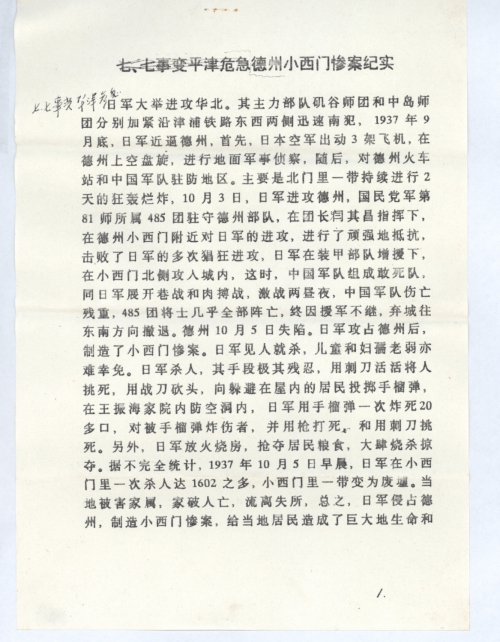 七、七事变平津危急德州小西门惨案纪实
七七事变平津危急
日军大举进攻华北。其主力部队矶谷师团和中岛师
团分别加紧沿津浦铁路东西两侧迅速南犯，1937 年 9
月底，日军近逼德州，首先，日本空军出动 3 架飞机，在
德州上空盘旋，进行地面军事侦察，随后，对德州火车
站和中国军队驻防地区。主要是北门里一带持续进行 2
天的狂轰烂炸，10 月 3 日，日军进攻德州，国民党军第
81 师所属 485 团驻守德州部队，在团长闫其昌指挥下，
在德州小西门附近对日军的进攻，进行了顽强地抵抗，
击败了日军的多次猖狂进攻，日军在装甲部队增援下，
在小西门北侧攻入城内，这时，中国军队组成敢死队，
同日军展开巷战和肉搏战，激战两昼夜，中国军队伤亡
残重，485 团将士几乎全部阵亡，终因援军不继，弃城往
东南方向撤退。德州 10 月 5 日失陷。日军攻占德州后，
制造了小西门惨案。日军见人就杀，儿童和妇孺老弱亦
难幸免。日军杀人，其手段极其残忍，用刺刀活活将人
挑死，用战刀砍头，向躲避在屋内的居民投掷手榴弹，
在王振海家院内防空洞内，日军用手榴弹一次炸死20
多口，对被手榴弹炸伤者，并用枪打死。和用刺刀挑
死。另外，日军放火烧房，抢夺居民粮食，大肆烧杀掠
夺。据不完全统计，1937 年 10 月 5 日早晨，日军在小西
门里一次杀人达 1602 之多，小西门里一带变为废墟。当
地被害家属，家破人亡，流离失所，总之，日军侵占德
州，制造小西门惨案，给当地居民造成了巨大地生命和
1.